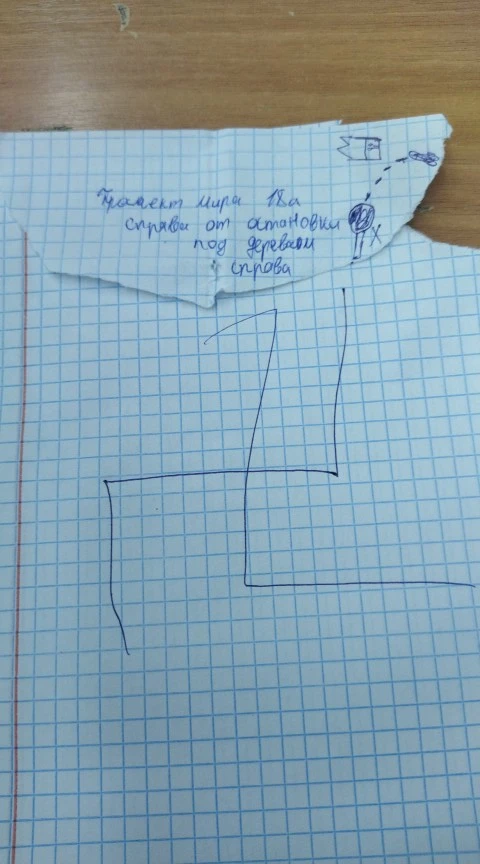 Проспект мира 18а
справа от остановки
под деревом
справа
X